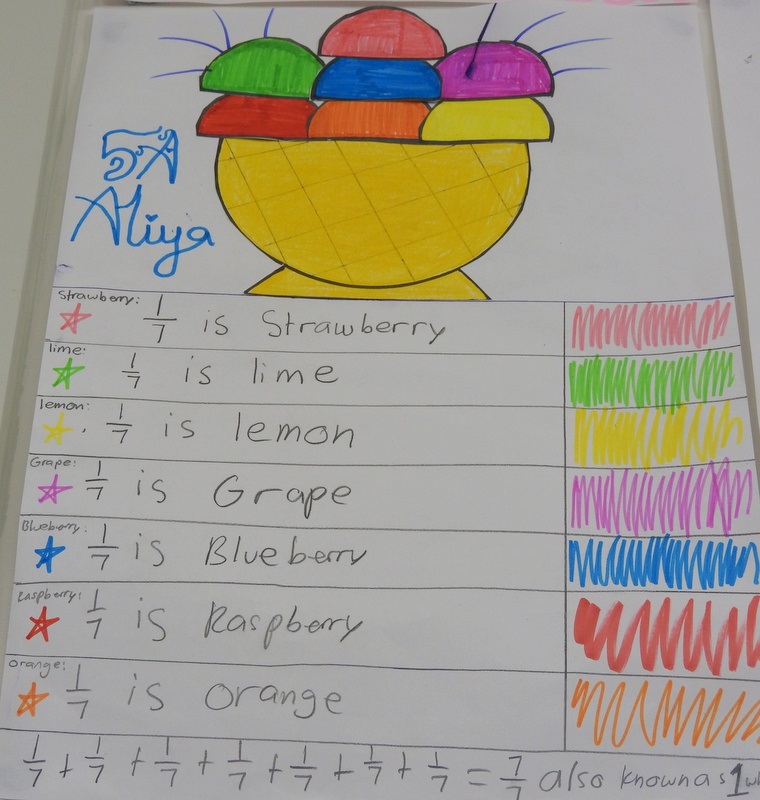 5A
Aliya
Strawberry:
1/7 is Strawberry
lime:
1/7 is lime
lemon:
1/7 is lemon
Grape:
1/7 is Grape
Blueberry:
1/7 is Blueberry
Raspberry:
1/7 is Raspberry
orange:
1/7 is orange
1/7 + 1/7 + 1/7 + 1/7 + 1/7 + 1/7 + 1/7 = 7/7 also known as 1